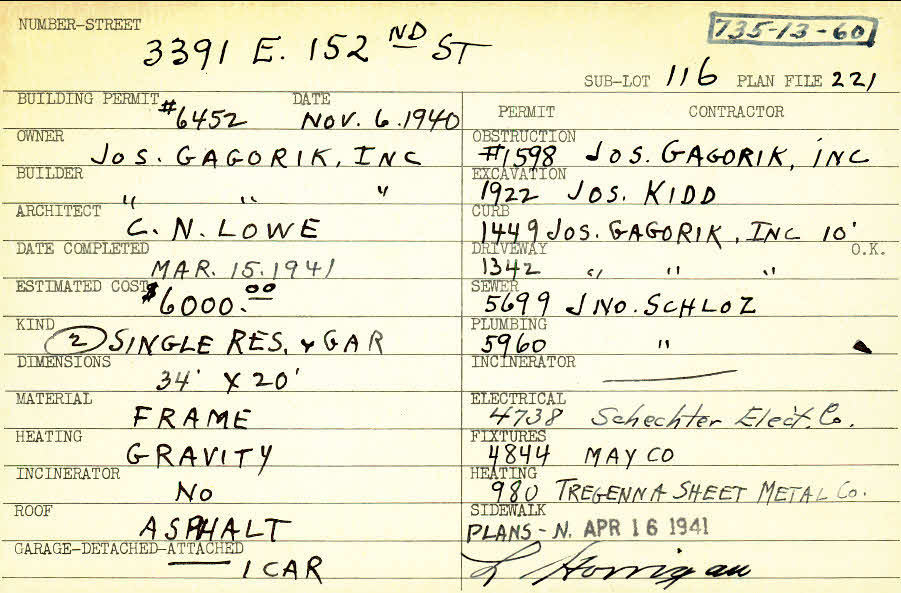 NUMBER-STREET
3391 E. 152 ND ST
735-13-60
SUB-LOT 116 PLAN FILE 221
BUILDING PERMIT #6452 DATE NOV. 6. 1940
OWNER JOS. GAGORIK, INC
BUILDER " " "
ARCHITECT C. N. LOWE
DATE COMPLETED MAR. 15. 1941
ESTIMATED COST $6000.00
KIND 2 SINGLE RES. & GAR
DIMENSIONS 34' X 20'
MATERIAL FRAME
HEATING GRAVITY
INCINERATOR NO
ROOF ASPHALT
GARAGE-DETACHED-ATTACHED 1 CAR
PERMIT CONTRACTOR
OBSTRUCTION #1598 JOS. GAGORIK, INC
EXCAVATION 1922 JOS. KIDD
CURB 1449 JOS. GAGORIK, INC 10'
DRIVEWAY 1342 " " " O.K.
SEWER 5699 JNO. SCHLOZ
PLUMBING 5960 "
INCINERATOR
ELECTRICAL 4738 Schechter Elect. Co.
FIXTURES 4844 MAY CO
HEATING 980 TREGENNA SHEET METAL Co.
SIDEWALK
PLANS - N. APR 16 1941
L Horrigan